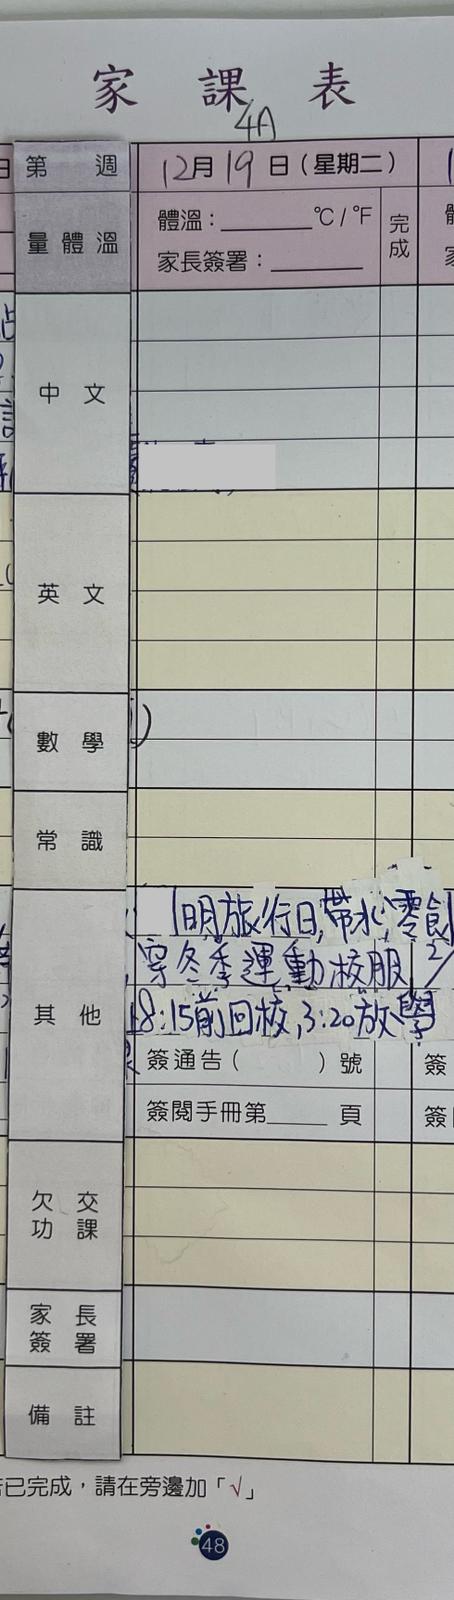 家課表
4A
第 週
12月19日(星期二)
量體溫
體溫:______℃/℉
家長簽署:______
完成
中文
英文
數學
常識
其他
明旅行日,帶水,零食
穿冬季運動校服
8:15前回校,3:20放學
簽通告( )號
簽
簽閱手冊第____頁
簽
欠交功課
家長簽署
備註
已完成,請在旁邊加「√」
48